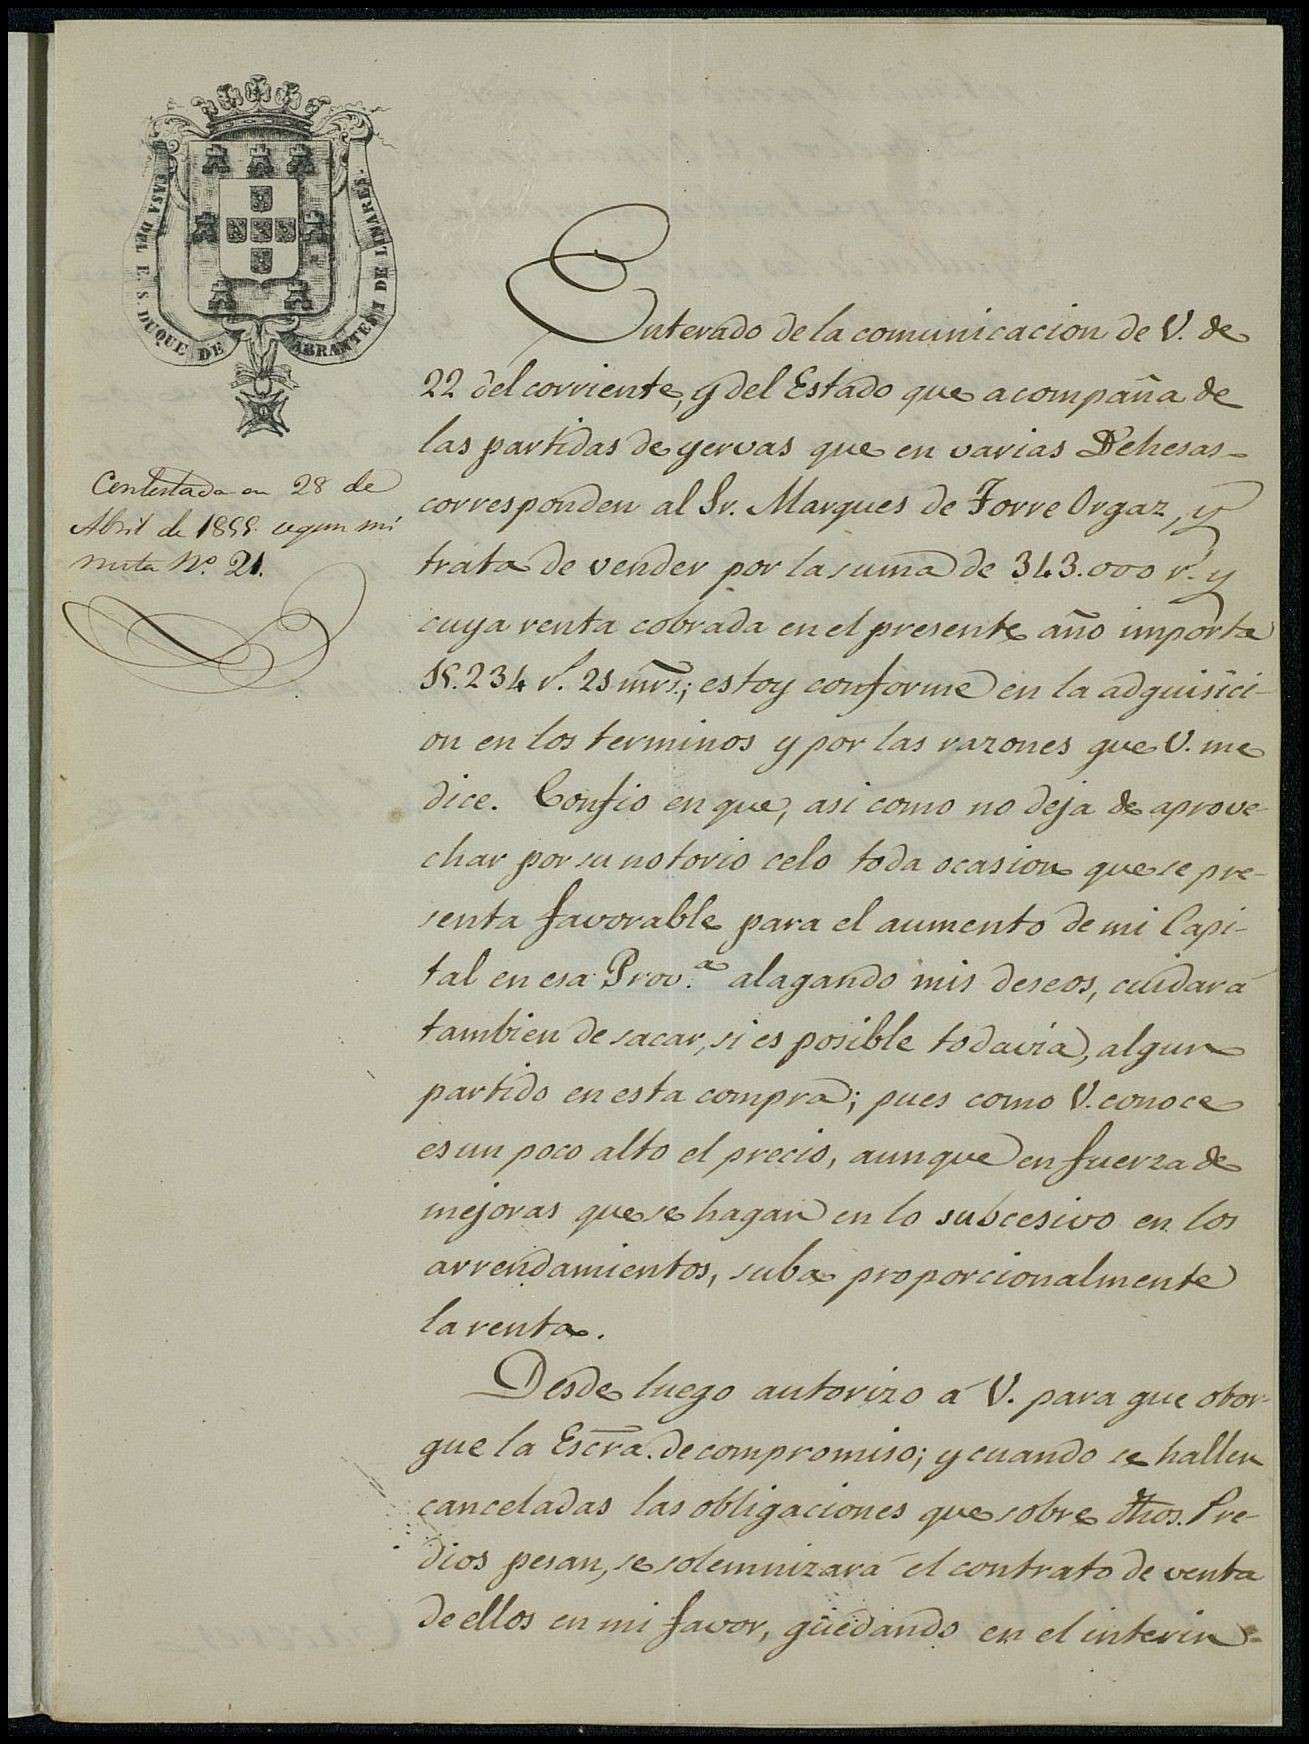 CASA DEL E. S. DUQUE DE ABRANTES Y DE LINARES.
Contestada en 28 de
Abril de 1855. segun mi
nuta Nº. 21.
Enterado de la comunicacion de V. de
22 del corriente, y del Estado que acompaña de
las partidas de yervas que en varias Dehesas
corresponden al Sr. Marques de Torre Orgaz, y
trata de vender por la suma de 343.000 r.s y
cuya renta cobrada en el presente año importa
15.234 r.s 21 mrs.; estoy conforme en la adquisici-
on en los terminos y por las razones que V. me
dice. Confio en que, asi como no deja de aprove-
char por su notorio celo toda ocasion que se pre-
senta favorable para el aumento de mi Capi-
tal en esa Prov.ª alagando mis deseos, cuidará
tambien de sacar, si es posible todavia, algun
partido en esta compra; pues como V. conoce
es un poco alto el precio, aunque en fuerza de
mejoras que se hagan en lo subcesivo en los
arrendamientos, suba proporcionalmente
la renta.
Desde luego autorizo á V. para que otor-
gue la Escra. de compromiso; y cuando se hallen
canceladas las obligaciones que sobre dhos. Pre-
dios pesan, se solemnizará el contrato de venta
de ellos en mi favor, quedando en el interin